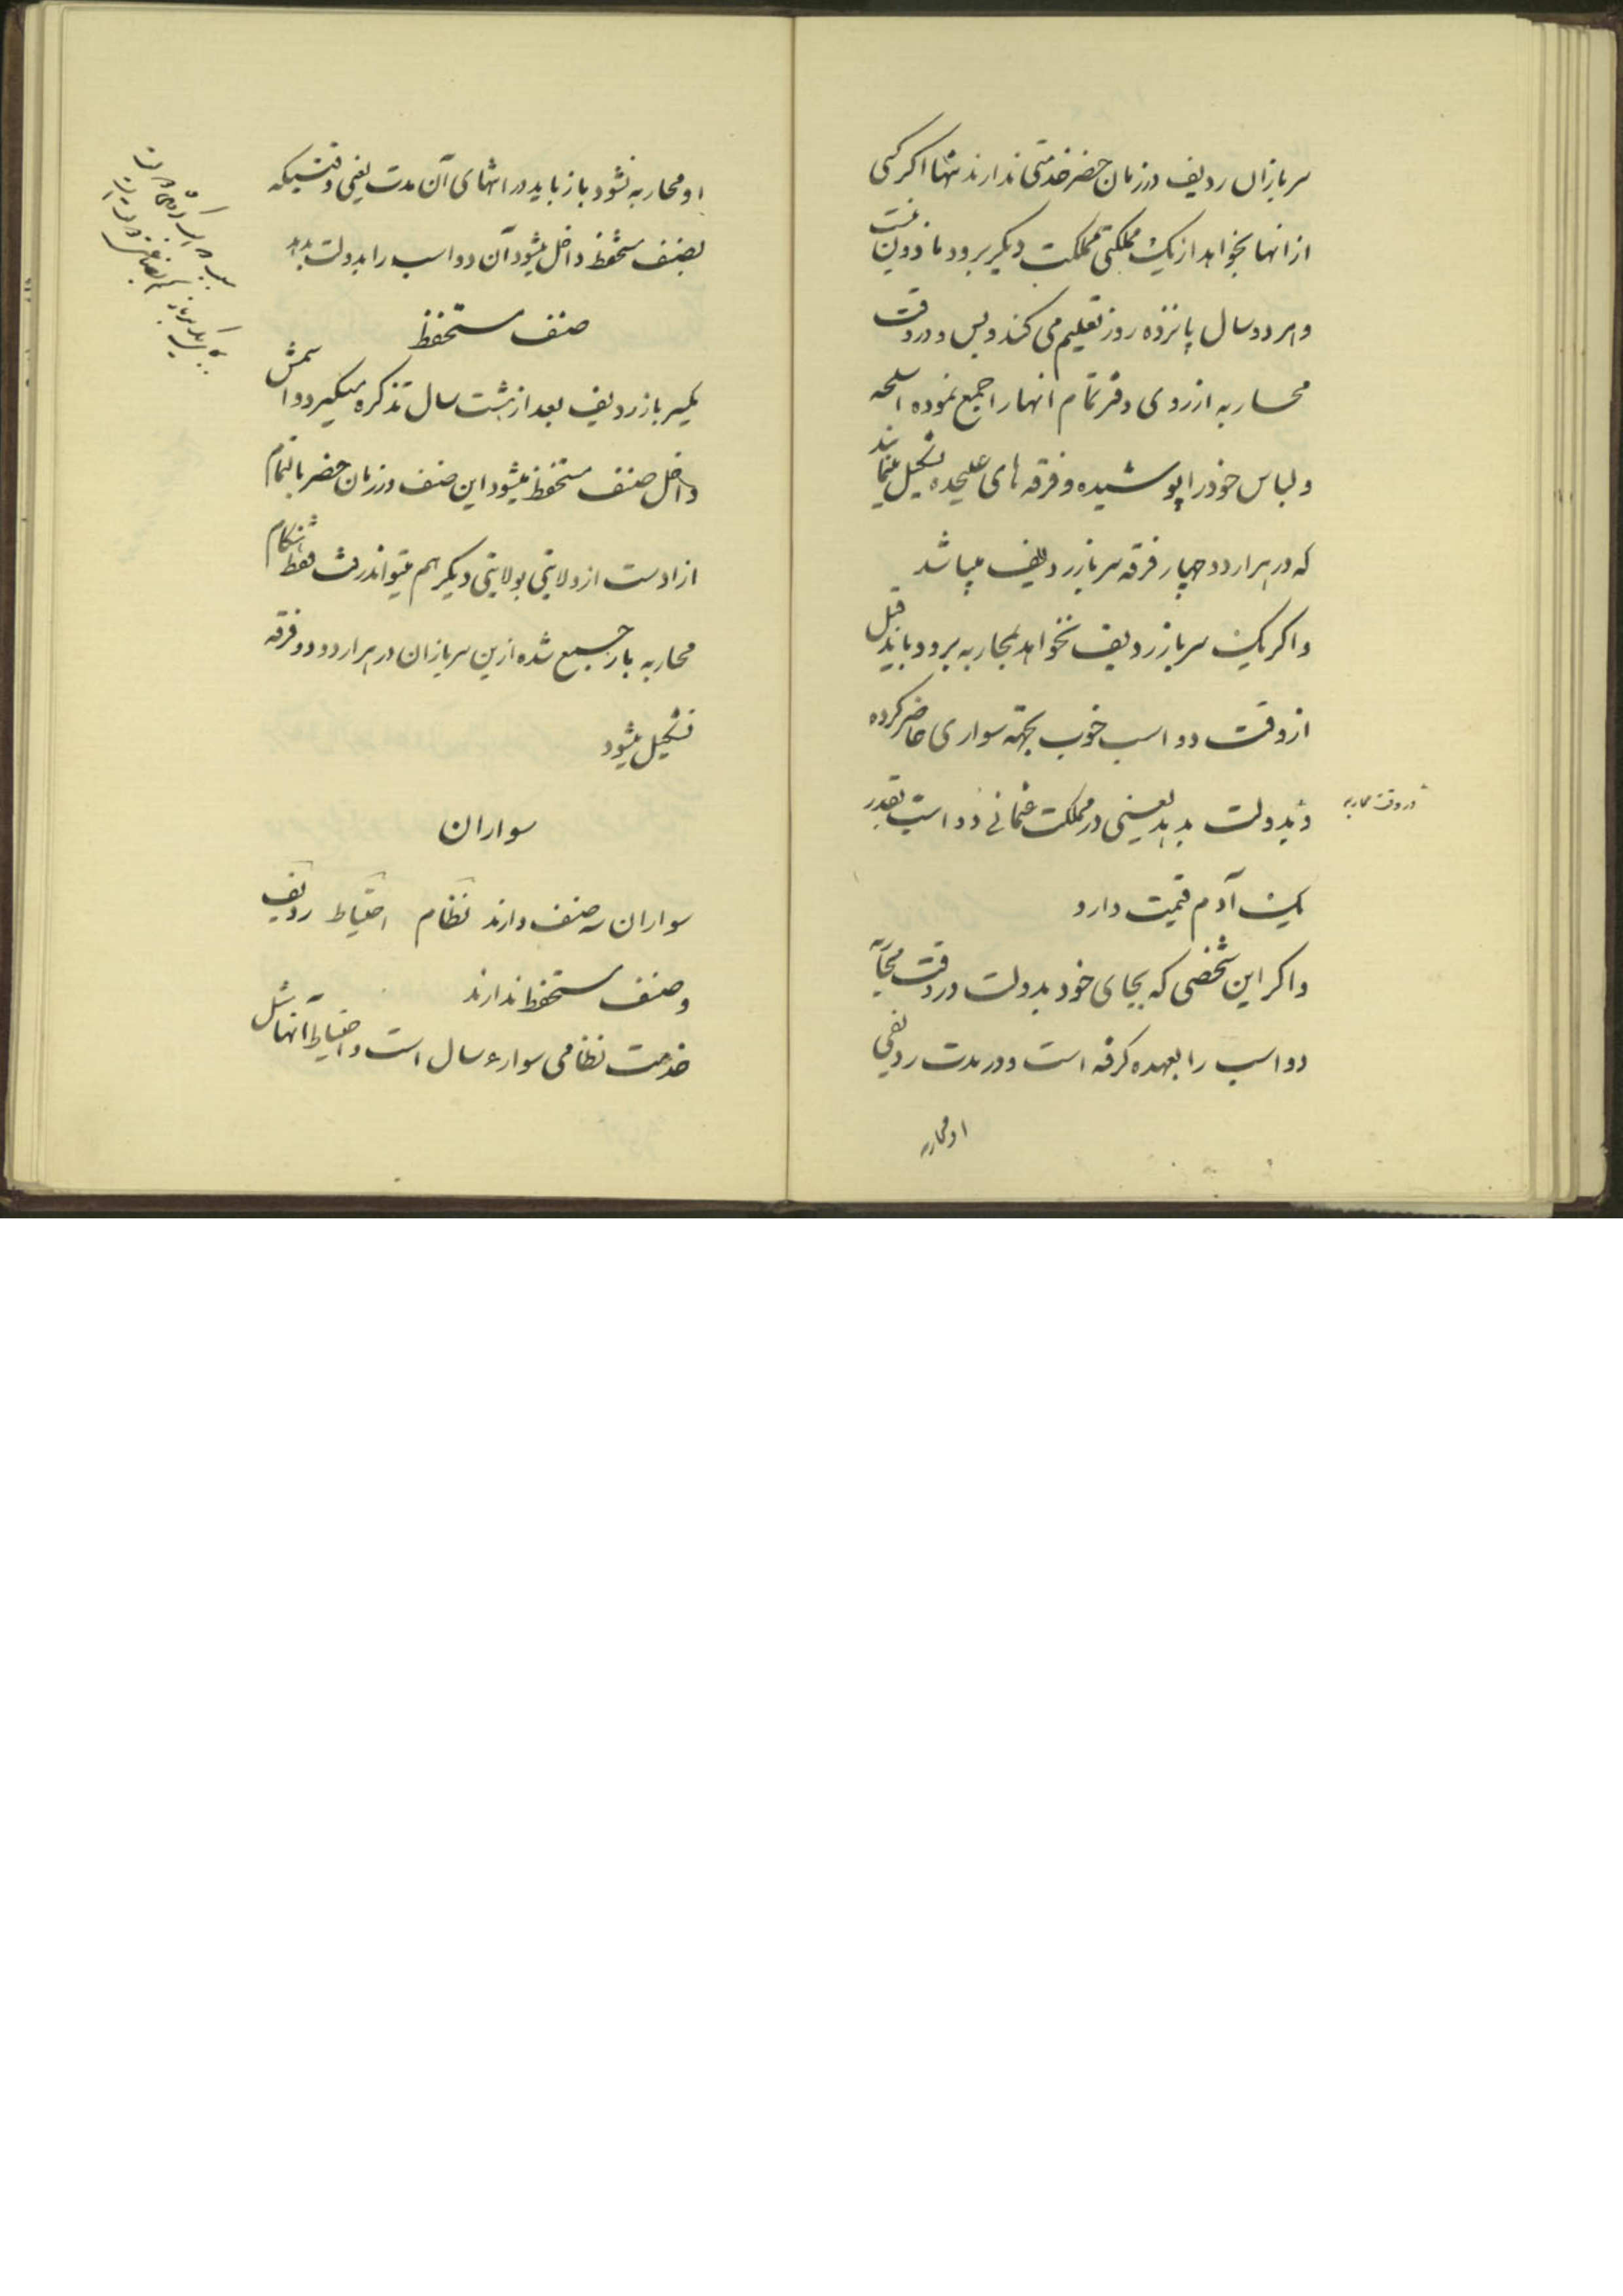 سربازان ردیف در زمان حضر خدمتی ندارند تنها اگر کسی
از انها بخواهد از یک مملکتی بمملکت دیگر برود ماذون نیست
و هر دو سال پانزده روز تعلیم می کند و بس و در وقت
محاربه از روی دفتر تمام انها را جمع نموده اسلحه
و لباس خود را پوشیده و فرقه های علیحده تشکیل مینمایند
که در هر اردو چهار فرقه سرباز ردیف میباشد
و اگر یک سرباز ردیف نخواهد بمحاربه برود باید قبل
از وقت دو اسب خوب بجهته سواری حاضر کرده
در وقت محاربه
و بدولت بدهد یعنی در مملکت عثمانی دو اسب بقدر
یک آدم قیمت دارد
و اگر این شخصی که بجای خود بدولت در وقت محاربه
دو اسب را بعهده گرفته است و در مدت ردیفی
او محاربه
او محاربه نشود باز باید در انتهای آن مدت یعنی وقتیکه
بصنف مستحفظ داخل میشود آن دو اسب را بدولت بدهد
صنف مستحفظ
یکسرباز ردیف بعد از هشت سال تذکره میگیرد و اسمش
داخل صنف مستحفظ میشود این صنف در زمان حضر بالتمام
ازادست از ولایتی بولایتی دیگر هم میتواند رفت فقط هنگام
محاربه باز جمع شده ازین سربازان در هر اردو دو فرقه
تشکیل میشود
سواران
سواران سه صنف دارند نظام احتیاط ردیف
و صنف مستحفظ ندارند
خدمت نظامی سواره ۴ سال است و احتیاط آنها مثل